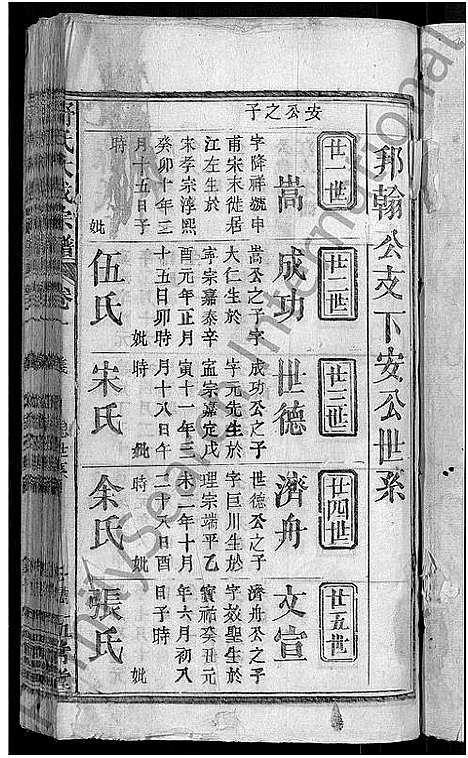 邦翰公支下安公世系
廿一世
安公之子
嵩
字降祥號申
甫宋末徙居
江左生於
宋孝宗淳熙
癸卯十年三
月十五日子
時
妣
廿二世
成功
嵩公之子字
大仁生於
寧宗嘉泰辛
酉元年正月
十五日卯時
妣
伍氏
廿三世
世德
成功公之子
字元先生於
寧宗嘉定戊
寅十一年三
月十八日午
時
妣
宋氏
廿四世
濟舟
世德公之子
字巨川生於
理宗端平乙
未二年十月
二十八日酉
時
妣
余氏
廿五世
文宣
濟舟公之子
字效聖生於
寶祐癸丑元
年六月初八
日子時
妣
張氏
氏大成宗譜
卷一
FamilySearch International